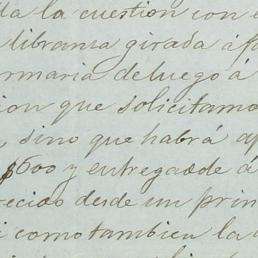 da la cuestion con e
libranza girada á fa
rmaria de luego á
ion que solicitamo
, sino que habrá
$600 y entregarse á
recido desde un prin
i como tambien la